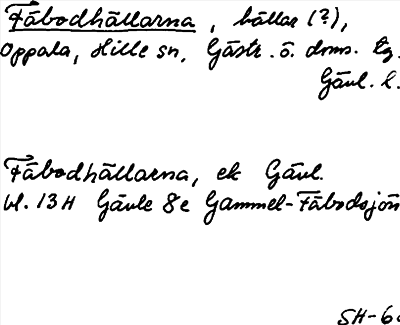 Fäbodhällarna, hällar (?),
Oppala, Hille sn, Gästr. ö. doms. tg.
Gävl. l.
Fäbodhällarna, ek Gävl.
bl. 13H Gävle 8e Gammel-Fäbodsjön
SH-6